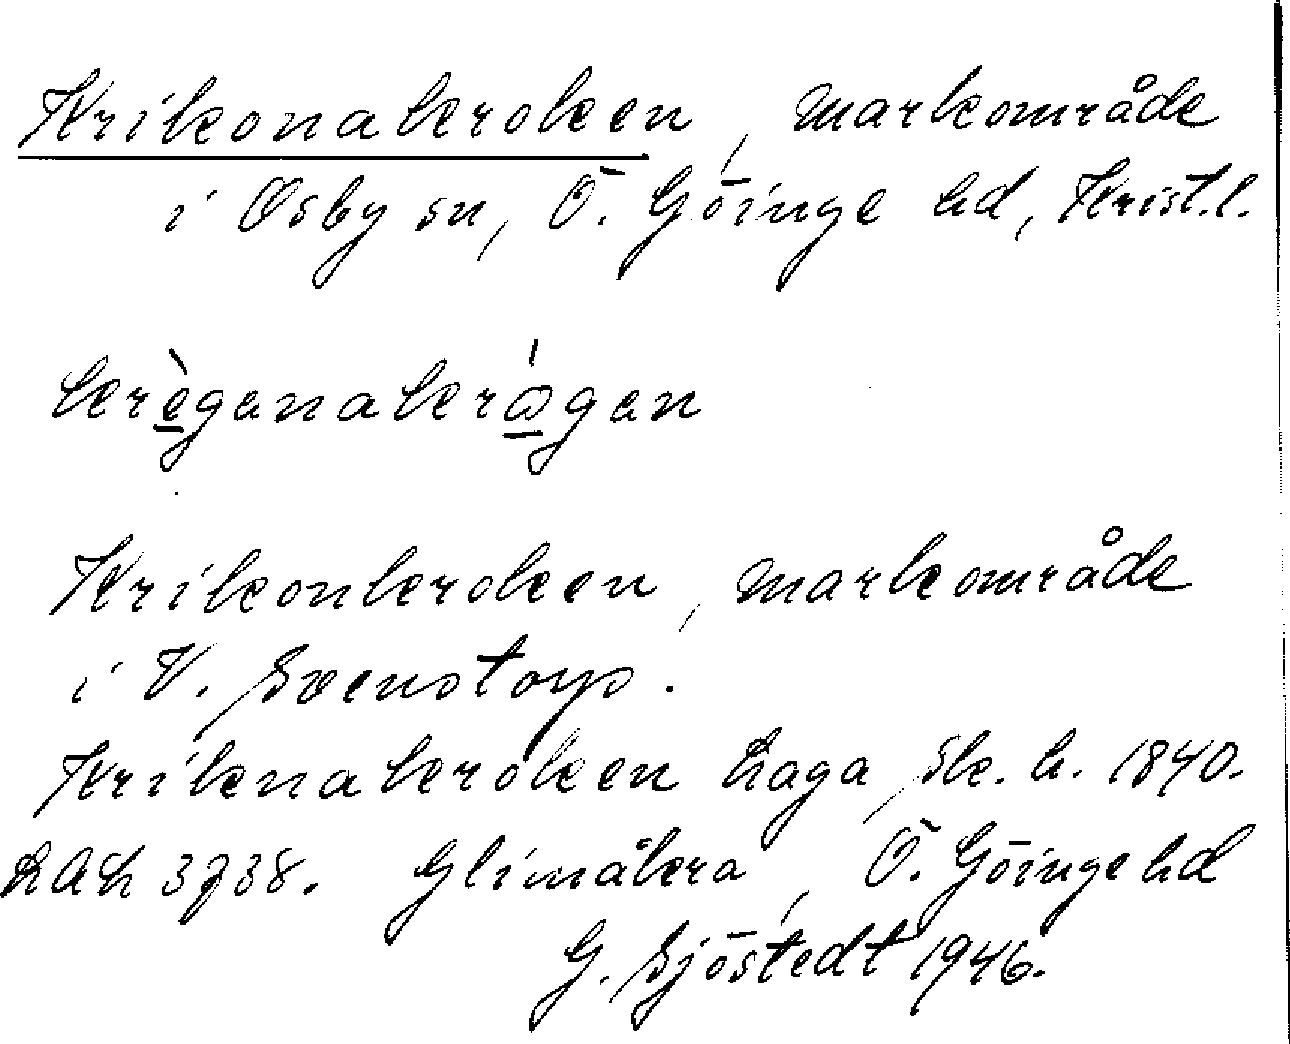 Krikonakroken, markområde
i Osby sn, Ö. Göinge hd, Krist.l.
krègenakrågen
Krikonkroken, markområde
i V. Svenstorp.
Kriknakroken Laga sk. h. 1840.
LAL 3738. Glimåkra, Ö. Göinge hd
G. Sjöstedt 1946.